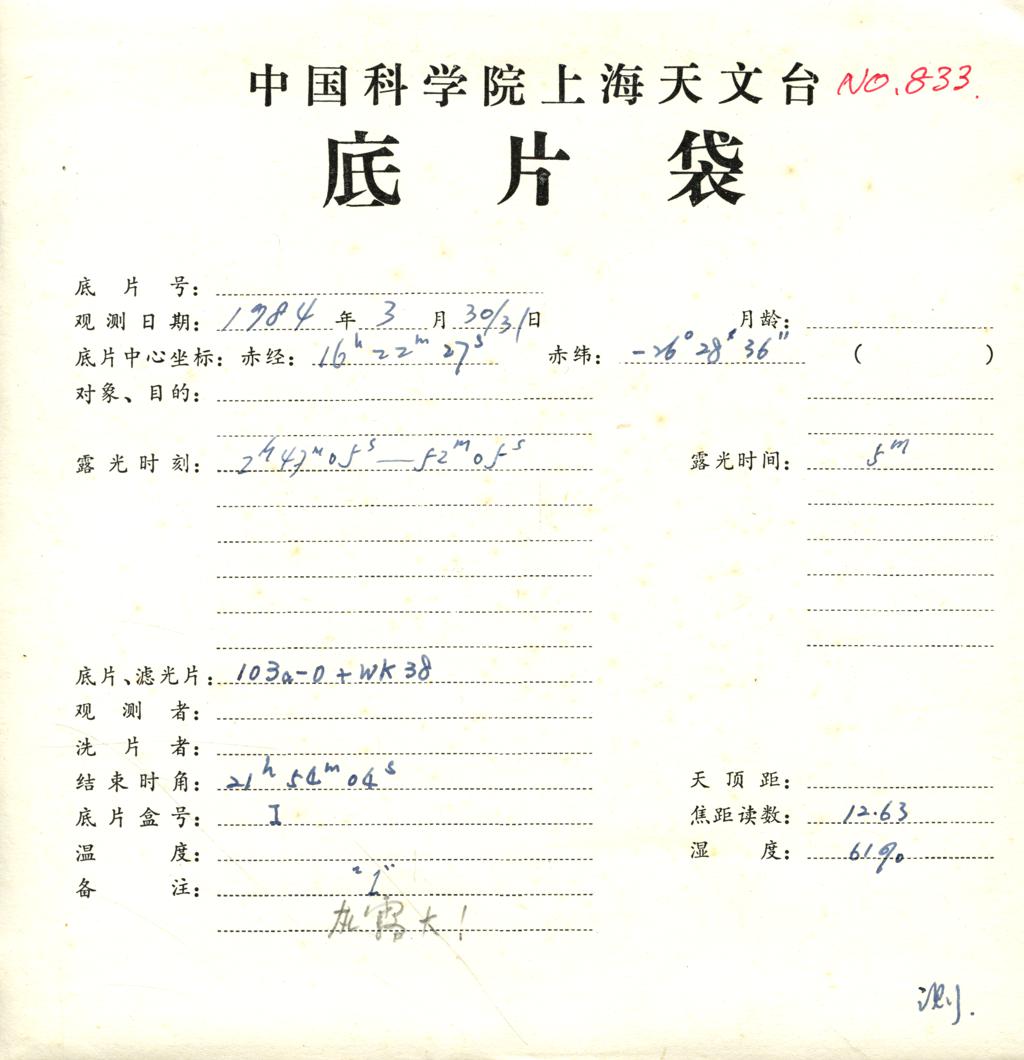 中国科学院上海天文台 NO.833.
底片袋
底片号：
观测日期：1984年3月30/31日 月龄：
底片中心坐标：赤经：16h22m27s 赤纬：-26°28′36″ ( )
对象、目的：
露光时刻：2h47m05s—52m05s 露光时间：5m
底片、滤光片：103a-O+WK38
观测者：
洗片者：
结束时角：21h54m04s 天顶距：
底片盒号：I 焦距读数：12.63
温度： 湿度：61%
备注："1"
雾大！
测.